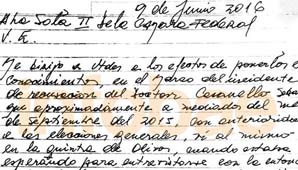 9 de Junio 2016
Ala Sala II de la Camara Federal
Me dirijo a Udes a los efectos de ponerlos en
conocimientos, en el Marco del incidente
de recusacion del Doctor
que aproximadamente a mediados del
de Septiembre del 2015, con anterioridad
a las elecciones generales, vi al mismo
en la quinta de Olivos, cuando estaba
esperando para entrevistarse con la